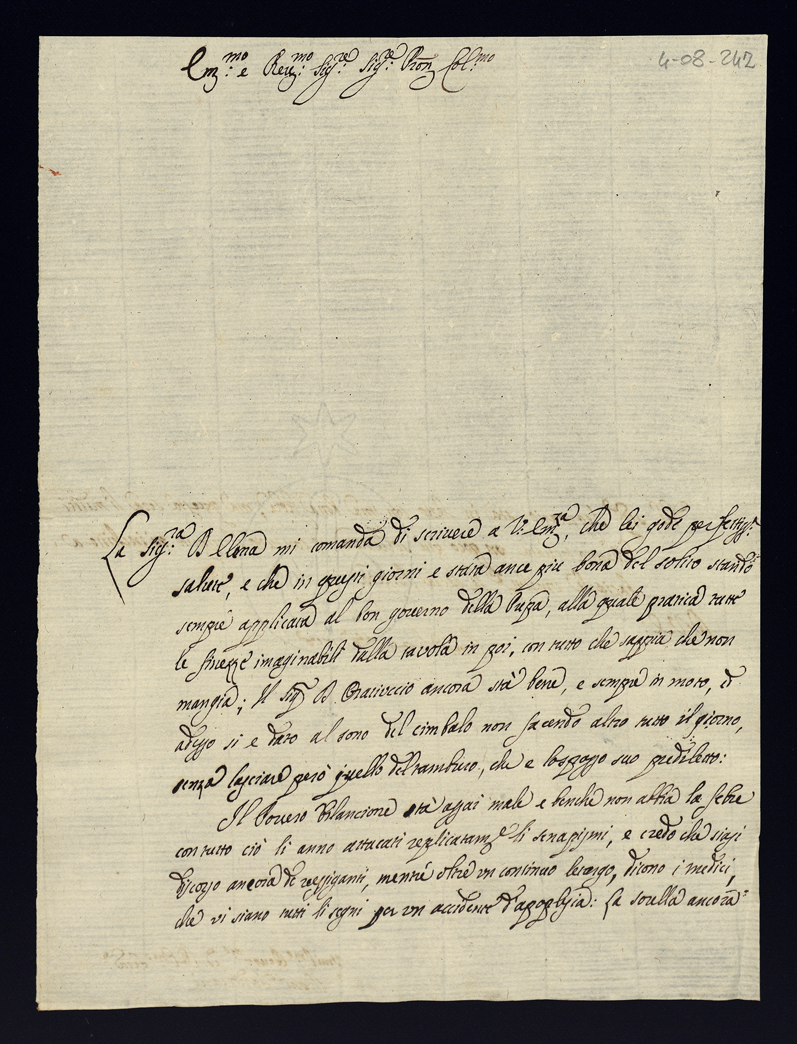 4-08-242
Em:mo e Rev:mo Sig:re Sig:re Pron Col:mo
La Sig:ra B Elena mi comanda di scrivere a V: Emza, che lei gode perfettissa
salute, e che in questi giorni e stata ance piu bona del solito stando
sempre applicata al bon governo della Pupa, alla quale pratica tutte
le finezze imaginabili dalla tavola in poi, con tutto che sappia che non
mangia; Il Sig B Oraziuccio ancora stà bene, e sempre in moto, ed
adesso si e dato al sono del cimbalo non facendo altro tutto il giorno,
senza lasciare però quello del tamburo, che e lo spasso suo prediletto:
Il Povero Bilancione stà assai male e benche non abbia la febre
con tutto ciò li anno attacati replicatame li senapismi, e credo che siasi
discorso ancora di vessiganti, mentre oltre un continuo letargo, dicono i medici,
che vi siano tutti li segni per un accidente d'apoplesia: La sorella ancora